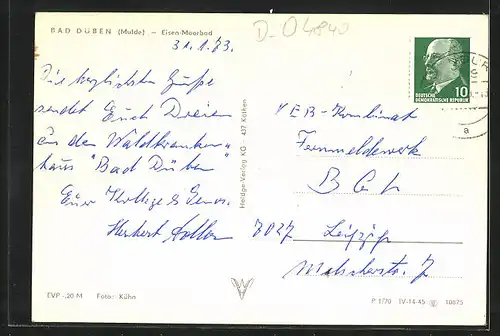 BAD DÜBEN (Mulde) – Eisen-Moorbad
31.1.73.
D-04840
Die herzlichsten Grüße
sendet Euch Dreien
aus dem Waldkranken-
haus "Bad Düben"
Euer Kollege & Genos.
Herbert
Heldge-Verlag KG 437 Köthen
DEUTSCHE
DEMOKRATISCHE REPUBLIK
10
a
VEB-Kombinat
Fernmeldewerk
7027 Leipzig
EVP -,20 M Foto: Kühn
P 1/70 IV-14-45 10875